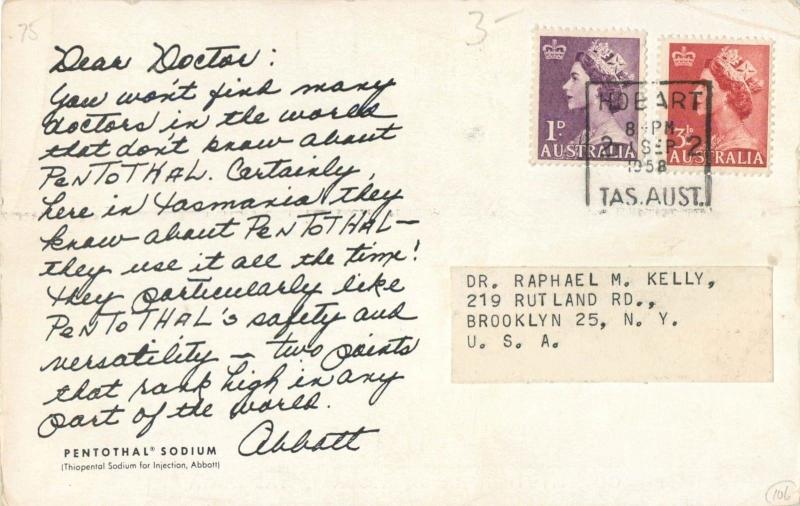 .75
3-
Dear Doctor:
You won't find many
doctors in the world
that don't know about
PENTOTHAL. Certainly,
here in Tasmania they
know about PENTOTHAL—
they use it all the time!
They particularly like
PENTOTHAL's safety and
versatility — two points
that rank high in any
part of the world.
Abbott
PENTOTHAL® SODIUM
(Thiopental Sodium for Injection, Abbott)
1D
AUSTRALIA
3½D
AUSTRALIA
HOBART
8-PM
2 SEP 2
1958
TAS. AUST.
DR. RAPHAEL M. KELLY,
219 RUTLAND RD.,
BROOKLYN 25, N. Y.
U. S. A.
106